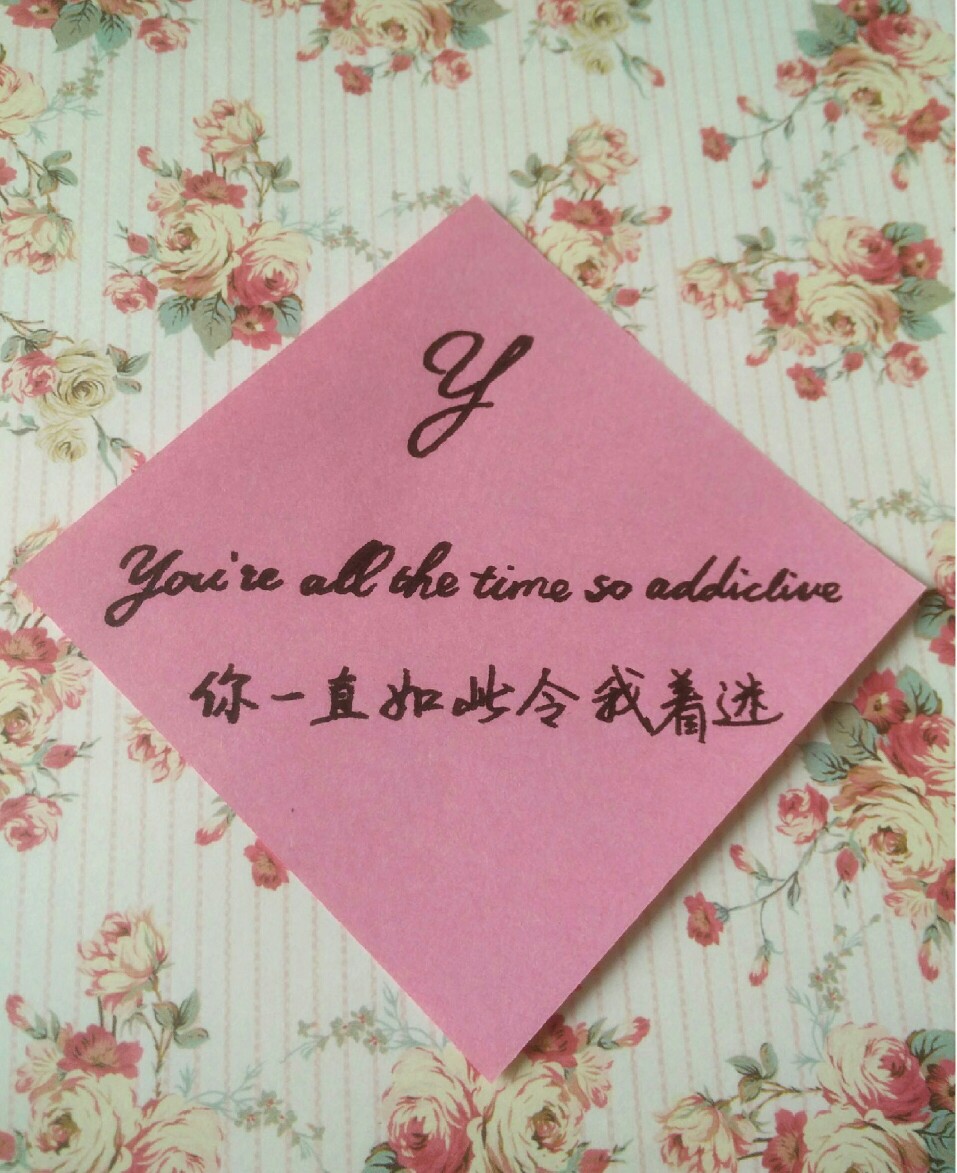 Y
You're all the time so addictive
你一直如此令我着迷